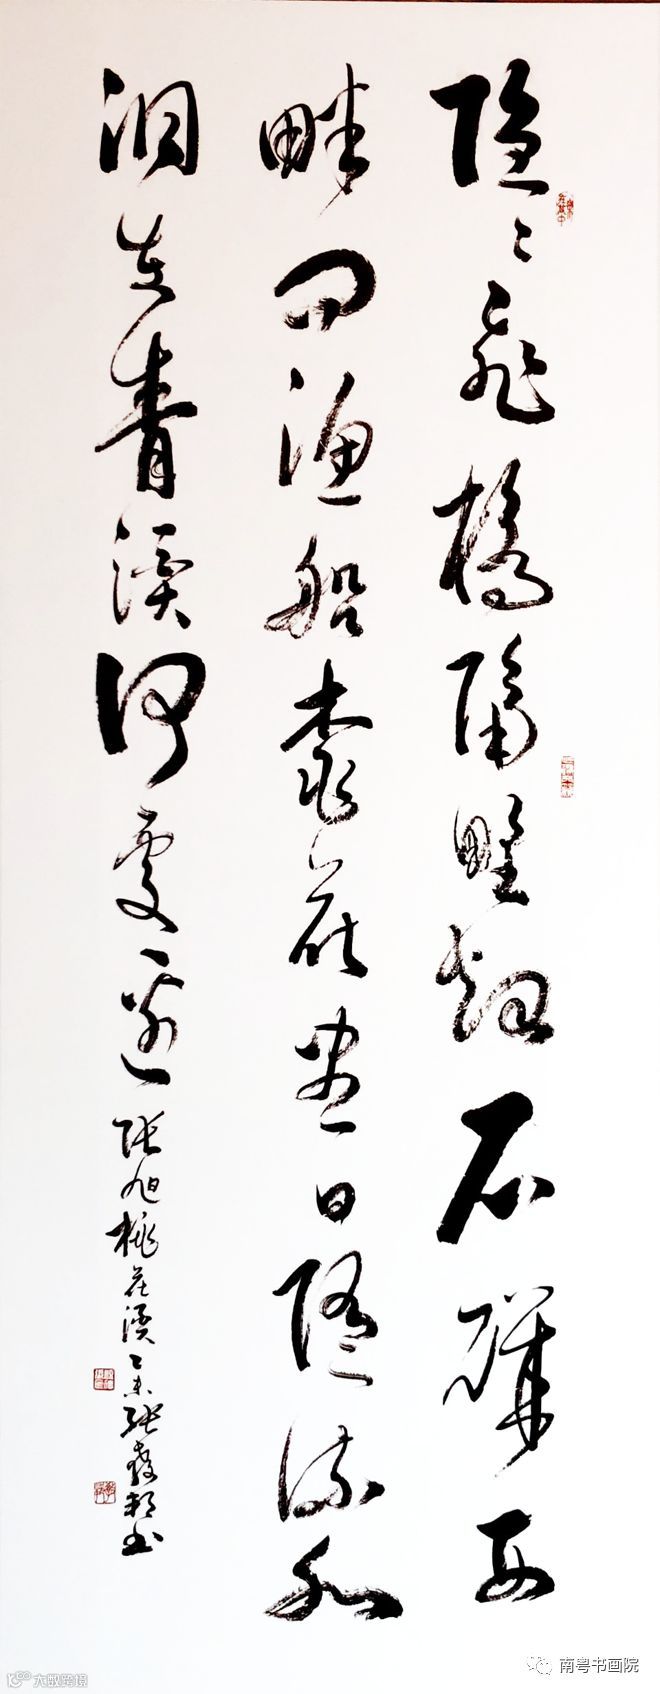 隐〻飞桥隔野烟石矶西
畔问渔船桃花尽日随流水
洞在青溪何处边 张旭桃花溪 乙未张书
南粤书画院
大数跨境